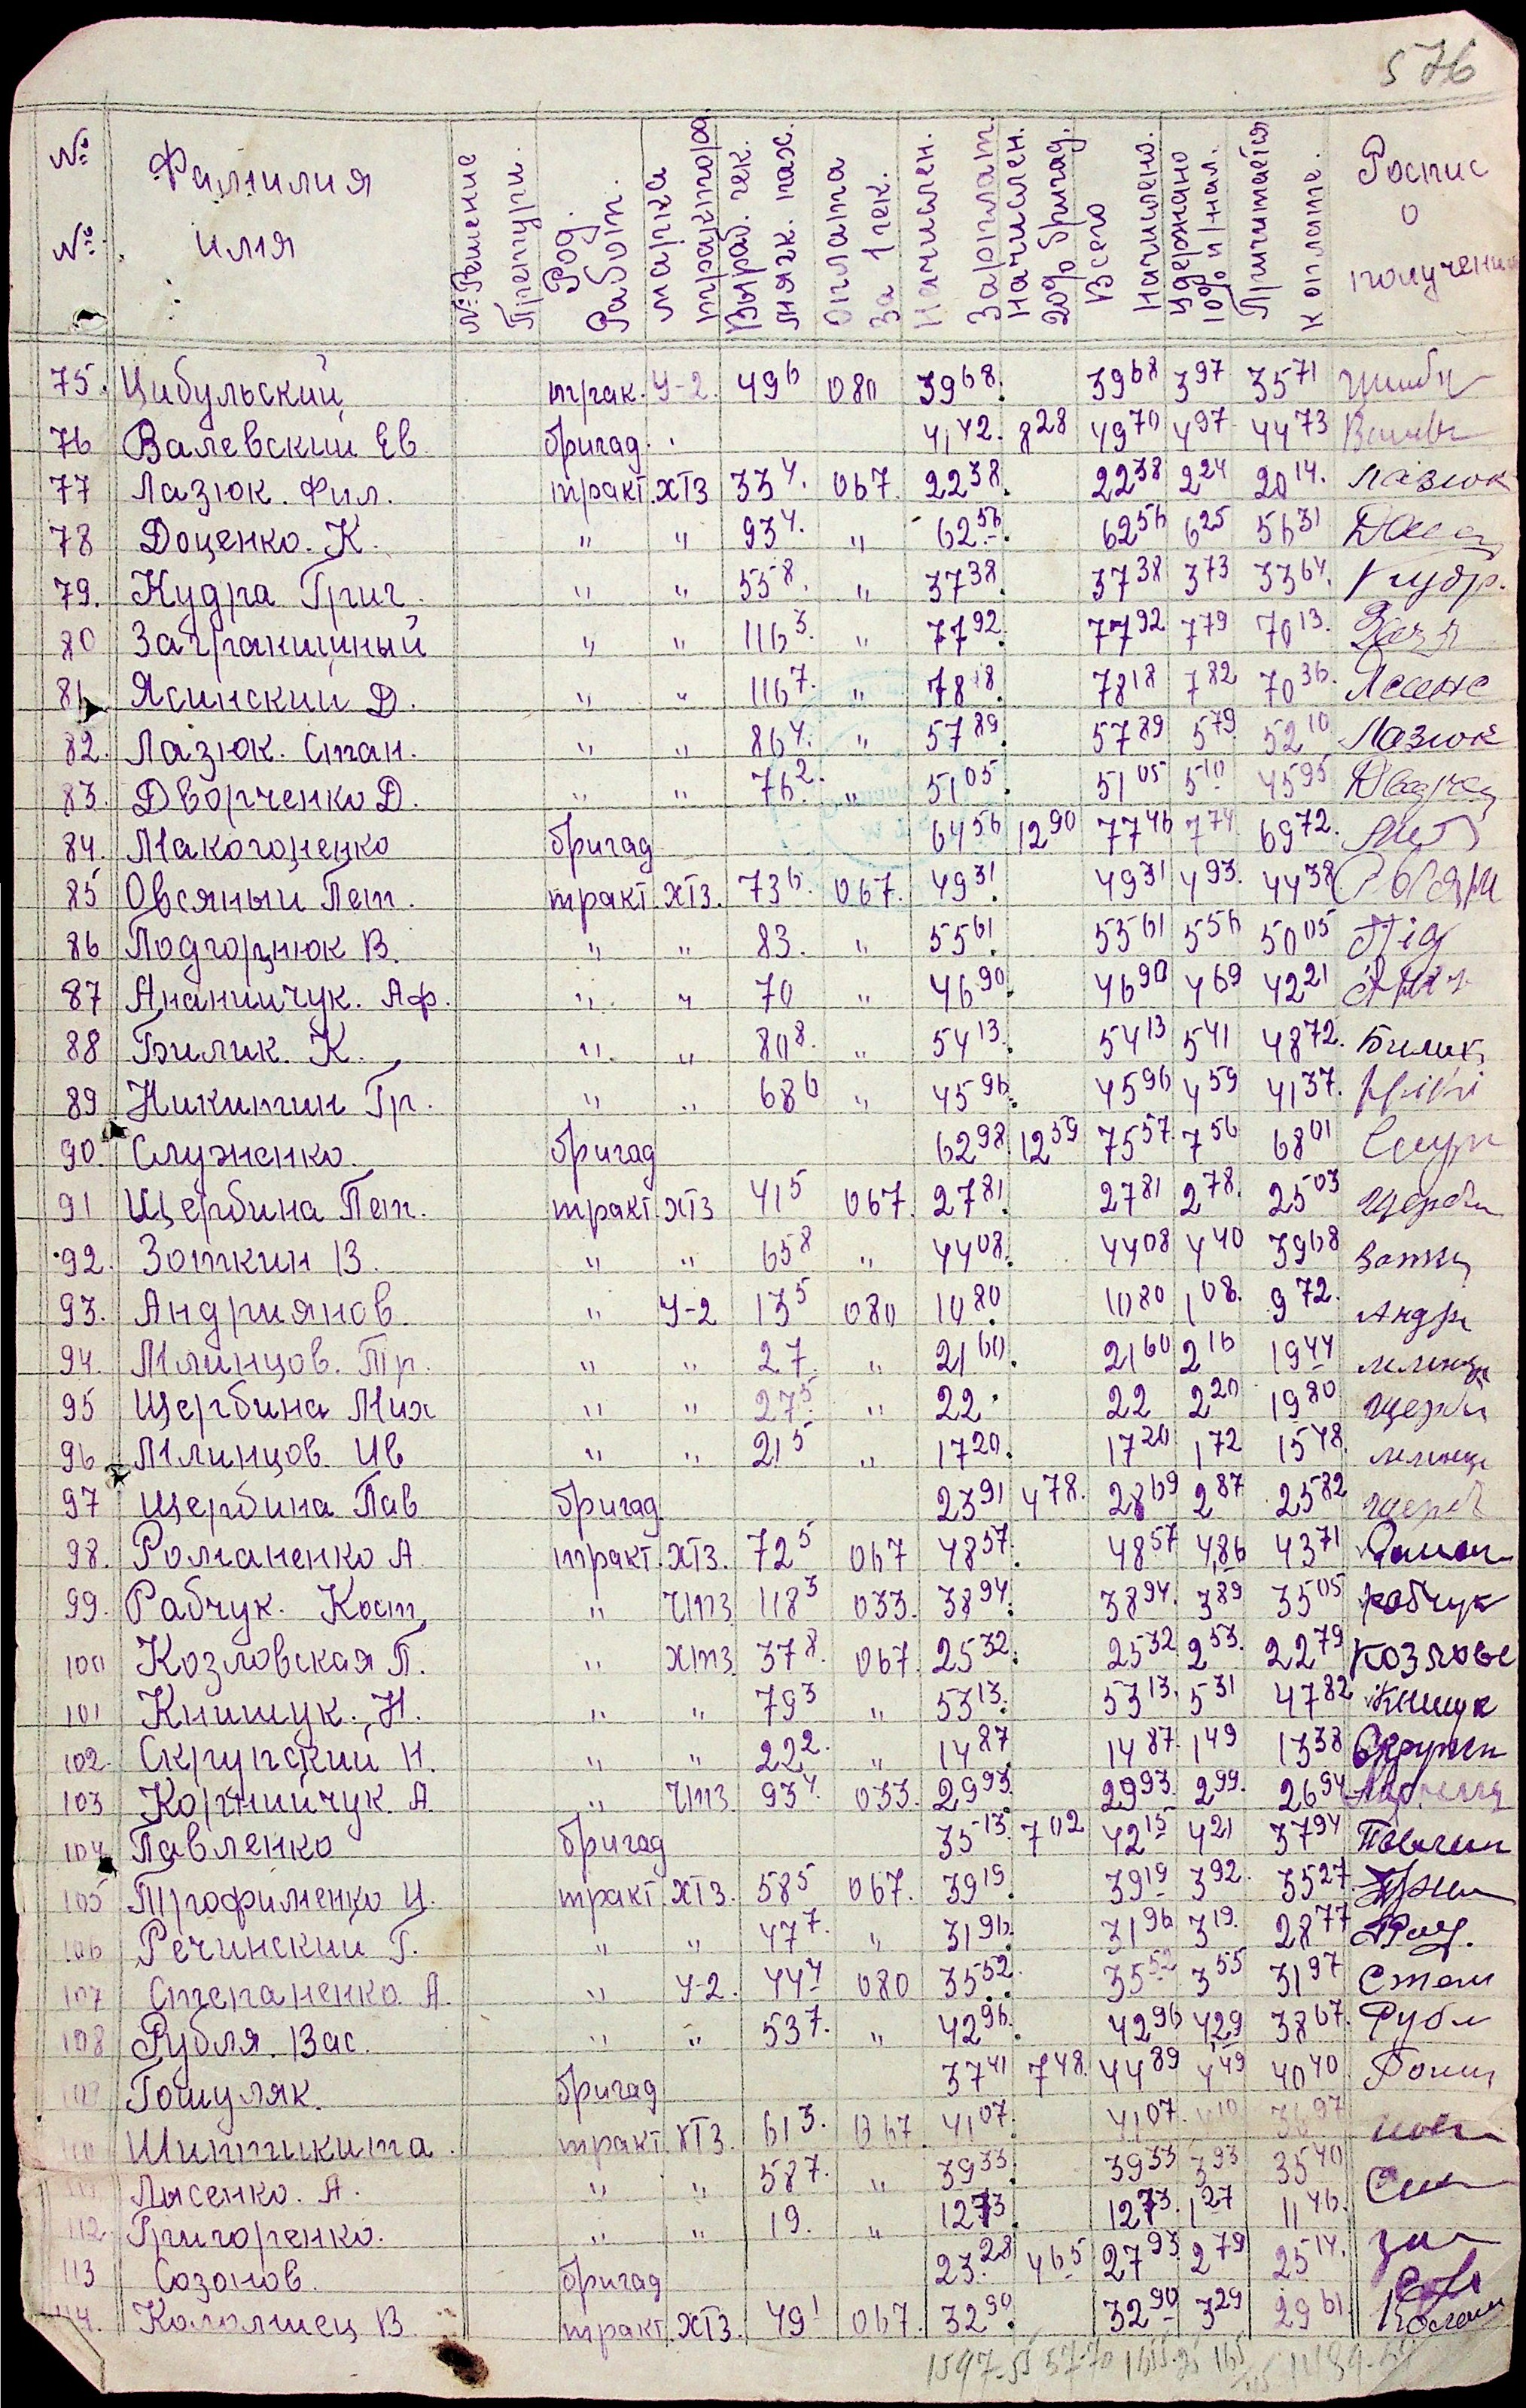 576
№ №
Фамилия имя
№ Решение Прентури.
Род. Работ.
марка трактора
Вырад. гек. мягк. пах.
Оплата За 1 гек.
Начислен. Зарплат.
Начислен. 20% бригад.
Всего Начислено.
Удержанно 10% п/нал.
Причитается к оплате.
Роспис о получении
75. Цибульский трак. У-2. 49 6 0 80 39 68. 39 68 3 97 35 71
76 Валевский Ев. бригад. 41,42. 8 28 49 70 4 97 44 73
77 Лазюк. Фил. тракт. ХТЗ 33 4. 0 67. 22 38. 22 38 2 24 20 14. Лазюк
78 Доценко. К. " " 93 4. " 62 56. 62 56 6 25 56 31
79. Кудра Григ. " " 55 8. " 37 38. 37 38 3 73 33 64. Кудр.
80 Заграничный " " 116 3. " 77 92. 77 92 7 79 70 13.
81 Ясинский Д. " " 116 7. " 78 18. 78 18 7 82 70 36.
82. Лазюк. Стан. " " 86 4. " 57 89. 57 89 5 79 52 10 Лазюк
83. Дворченко Д. " " 76 2. " 51 05. 51 05 5 10 45 95
84. Макогоненко бригад 64 56 12 90 77 46 7 74 69 72.
85 Овсяный Пет. тракт. ХТЗ. 73 6. 0 67. 49 31. 49 31 4 93. 44 38
86 Подгорнюк В. " " 83. " 55 61. 55 61 5 56 50 05 Під
87 Ананийчук. Аф. " " 70 " 46 90. 46 90 4 69 42 21
88 Билик. К. " " 80 8. " 54 13. 54 13 5 41 48 72. Билик
89 Никитин Гр. " " 68 6 " 45 96. 45 96 4 59 41 37. Нікі
90. Служенко. бригад 62 98 12 59 75 57 7 56 68 01
91 Щербина Пет. тракт. ХТЗ 41 5 0 67. 27 81. 27 81 2 78. 25 03 Щерби
92. Зоткин В. " " 65 8 " 44 08. 44 08 4 40 39 68 Зотки
93. Андриянов. " У-2 13 5 0 80 10 80. 10 80 1 08. 9 72. Андри
94. Млинцов. Тр. " " 27. " 21 60. 21 60 2 16 19 44 млинц
95 Щербина Мих " " 27 5. " 22. 22 2 20 19 80 Щерби
96 Млинцов. Ив " " 21 5 " 17 20. 17 20 1 72 15 48. млинц
97 Щербина Пав бригад. 23 91 4 78. 28 69 2 87 25 82 Щерб
98. Романенко А. тракт. ХТЗ. 72 5 0 67 48 57. 48 57 4,86 43 71 Роман
99. Рабчук. Кост. " ЧТЗ 118 3 0 33. 38 94. 38 94. 3 89 35 05 Рабчук
100 Козловская П. " ХТЗ 37 8. 0 67. 25 32. 25 32 2 53. 22 79 Козловс
101 Книшук. Н. " " 79 3 " 53 13. 53 13. 5 31 47 82 Книщук
102. Скрупский Н. " " 22 2. " 14 87. 14 87. 1 49 13 38 Скрупси
103 Корнийчук. А. " ЧТЗ. 93 4. 0 33. 29 93. 29 93. 2 99. 26 94
104 Павленко бригад 35 13. 7 02 42 15 4 21 37 94
105 Трофименко И. тракт. ХТЗ. 58 5 0 67. 39 19. 39 19 3 92. 35 27
106 Речинский Г. " " 47 7. " 31 96. 31 96 3 19. 28 77
107 Степаненко. А. " У-2. 44 4 0 80 35 52. 35 52 3 55 31 97 Степ
108 Рубля. Вас. " " 53 7. " 42 96. 42 96 4,29 38 67. Рубл
109 Гошуляк. бригад 37 41 7 48. 44 89 4 49 40 40 Гошу
110 Шиптикита. тракт. ХТЗ. 61 3. 0 67. 41 07. 41 07. 4 10 36 97
111 Лысенко. А. " " 58 7. " 39 33. 39 33 3 93 35 40
112. Григоренко. " " 19. " 12 73. 12 73. 1 27 11 46. за
113 Созонов. бригад 23. 28 4 65 27 93 2 79 25 14.
114. Коломиец В. тракт. ХТЗ. 49 1 0 67. 32 90. 32 90 3 29 29 61.
1597-55 57-70